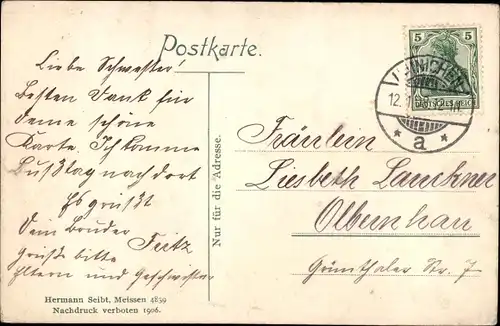 Postkarte.
Liebe Schwester!
Besten Dank für
deine schöne
Karte. Ich komme
Bußtag nach dort
Es grüßt
Dein Bruder
Fritz
Grüße bitte
Eltern und Geschwister
Nur für die Adresse.
5 5
DEUTSCHES REICH
12.
* a *
Fräulein
Liesbeth Lauckner
Olbernhau
Grünthaler Str. 7
Hermann Seibt, Meissen 4859
Nachdruck verboten 1906.